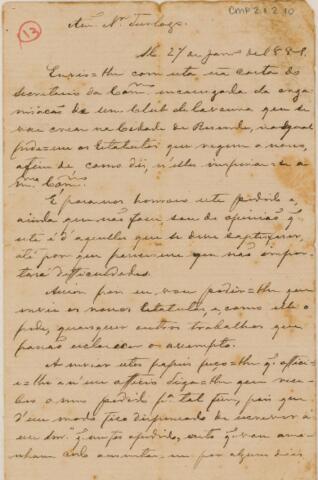 13
CMP 2.1.2.10
Am.º Nr. Furlaga.
27 de janr.º de 1881.
Envio=lhe com esta uma carta do
secretario da Com.m encarregada da orga
nisação de um Club de lavoura que se
vai crear na Cidade de Rezende, na qual
pede=me os Estatutos que regem o nosso,
afim de como diz, n'elles inspirar=se a
m.ma Com.m
É para nos honroso este pedido e,
ainda que não fosse sou de opinião q.
este é d'aquelles que se deve satisfazer,
até por que parece=me que não impor
tará difficuldades.
Assim por eu, vou pedir=lhe que
envie os nossos Estatutos, e, como elle
pede, quaesquer outros trabalhos que
possão esclarecer o assumpto.
A enviar estes papeis peço=lhe q. offici
e=lhe e n'um officio diga=lhe que rece
beo o meu pedido p.ª tal fim, pois que
d'esse modo fico dispensado de escrever á
esse Snr. q. m.to apedido, visto q. vou ama
nham cedo ausentar=me por alguns dias